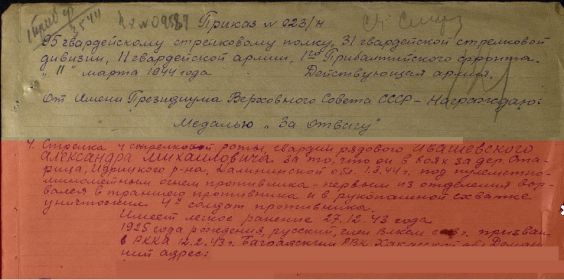 Приказ № 023/н
95 гвардейскому стрелковому полку, 31 гвардейской стрелковой
дивизии, 11 гвардейской армии, 1го Прибалтийского фронта.
"11" марта 1944 года Действующая армия.
От Имени Президиума Верховного Совета СССР - Награждаю:
Медалью "За Отвагу"
4. Стрелка 4 стрелковой роты, гвардии рядового Ивашевского
Александра Михайловича за то, что он в боях за дер. Ста-
рица, р-на, Калининской обл. 1.3.44г. под пулеметно-
минометным огнем противника - первым из отделения вор-
вался в траншею противника и в рукопашной схватке
уничтожил 4х солдат противника.
Имеет легкое ранение 27.12.43 года
1925 года рождения, русский, член ВЛКСМ с г. призван
в РККА 12.2.43г. РВК Хакасской обл Домаш-
ний адрес: